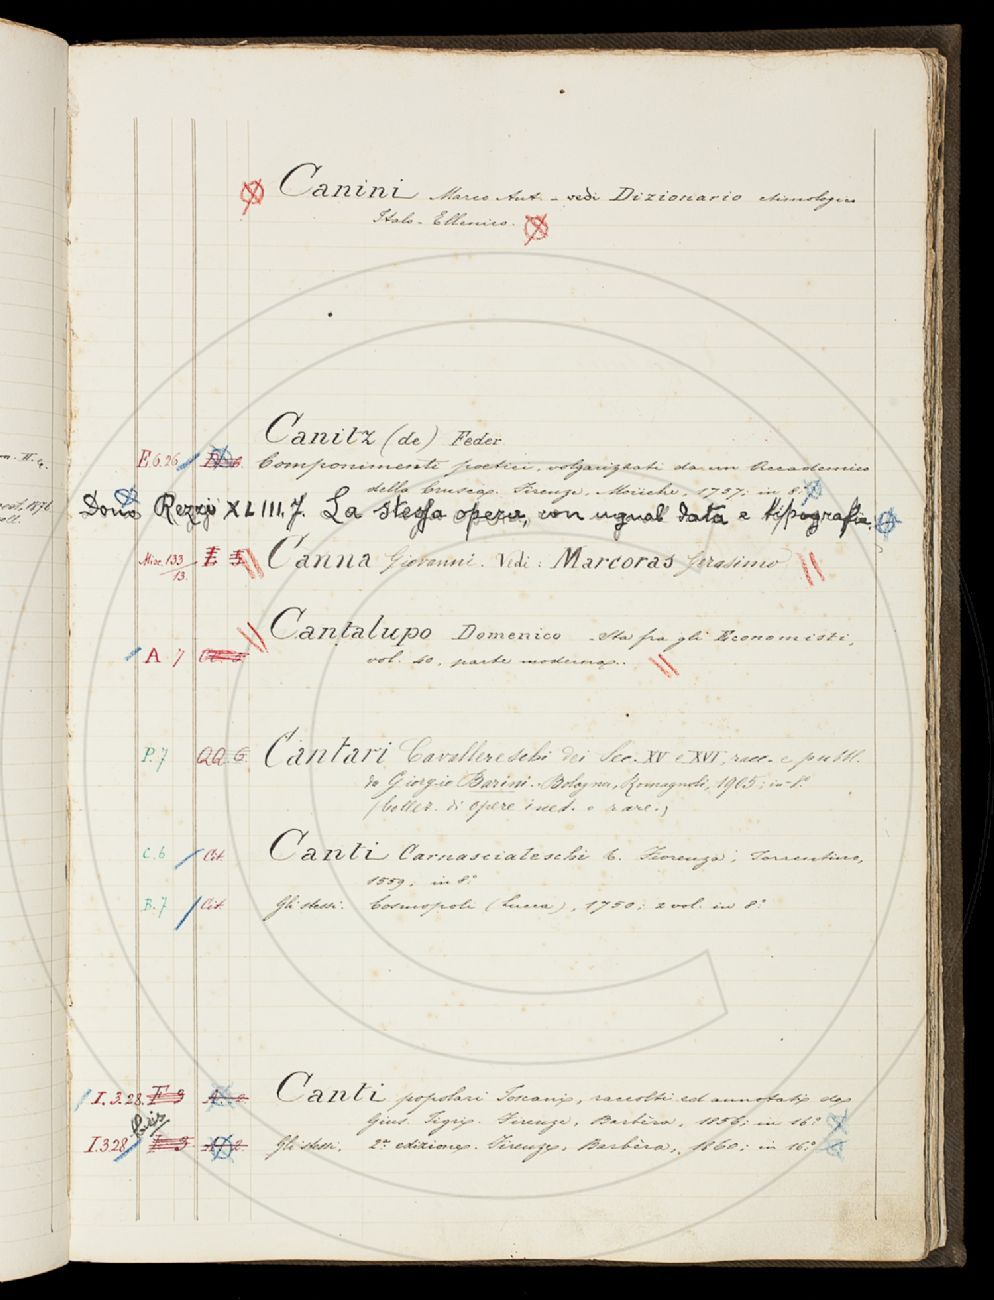 Canini Marco Ant. - vedi Dizionario etimologico
Italo-Ellenico.
Canitz (de) Feder
E.6.26 Componimenti poetici, volgarizzati da un Accademico
della Crusca. Firenze, Moücke, 1757; in 8.°
Dono Rezzi XLIII.7. La stessa opera, con ugual data e tipografia.
Misc. 133/13. E 5 Canna Giovanni. Vedi: Marcoras Gerasimo
Cantalupo Domenico Sta fra gli Economisti,
A 7 vol. 40, parte moderna.
P.7 QQ. 6 Cantari Cavallereschi dei Sec. XV e XVI, racc. e pubbl.
da Giorgio Barini. Bologna, Romagnoli, 1905; in 8.°
(Collez. di opere ined. o rare.)
C.6 Cit. Canti Carnascialeschi Fiorenza, Torrentino,
1559, in 8.°
B.7 Cit. Gli stessi. Cosmopoli (Lucca), 1750; 2 vol. in 8.°
I.3.28. F 9 Canti popolari Toscani, raccolti ed annotati da
Gius. Tigri. Firenze, Barbèra, 1856; in 16.°
bis
I.3.28 Gli stessi. 2.a edizione. Firenze, Barbèra, 1860; in 16.°